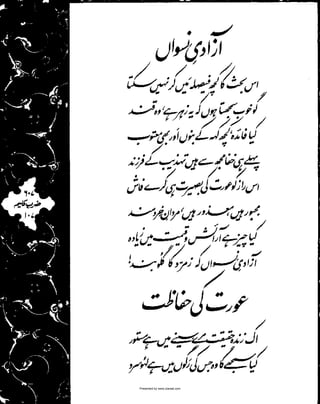 آزادیِ نسواں
اس بحث کا کچھ فیصلہ میں کر نہیں سکتا
گو خوب سمجھتا ہوں کہ یہ زہر ہے، وہ قند
کیا فائدہ کچھ کہہ کے بنوں اور بھی معتوب
پہلے ہی خفا مجھ سے ہیں تہذیب کے فرزند
اس راز کو عورت کی بصیرت ہی کرے فاش
مجبور ہیں، معذور ہیں، مردانِ خردمند
کیا چیز ہے آرائش و قیمت میں زیادہ
آزادیِ نسواں کہ زمرد کا گلوبند!
عورت کی حفاظت
اک زندہ حقیقت مرے سینے میں ہے مستور
کیا سمجھے گا وہ جس کی رگوں میں ہے لہو سرد
۶۰۷
ضربِ کلیم
۱۰۷
Presented by www.ziaraat.com